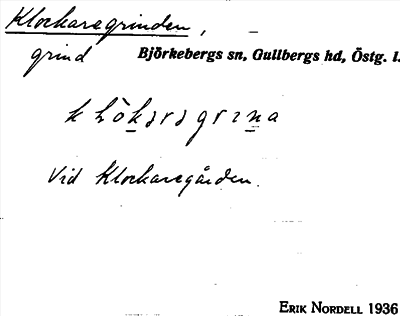 Klockaregrinden,
grind Björkebergs sn, Gullbergs hd, Östg. l.
Vid Klockaregården.
ERIK NORDELL 1936